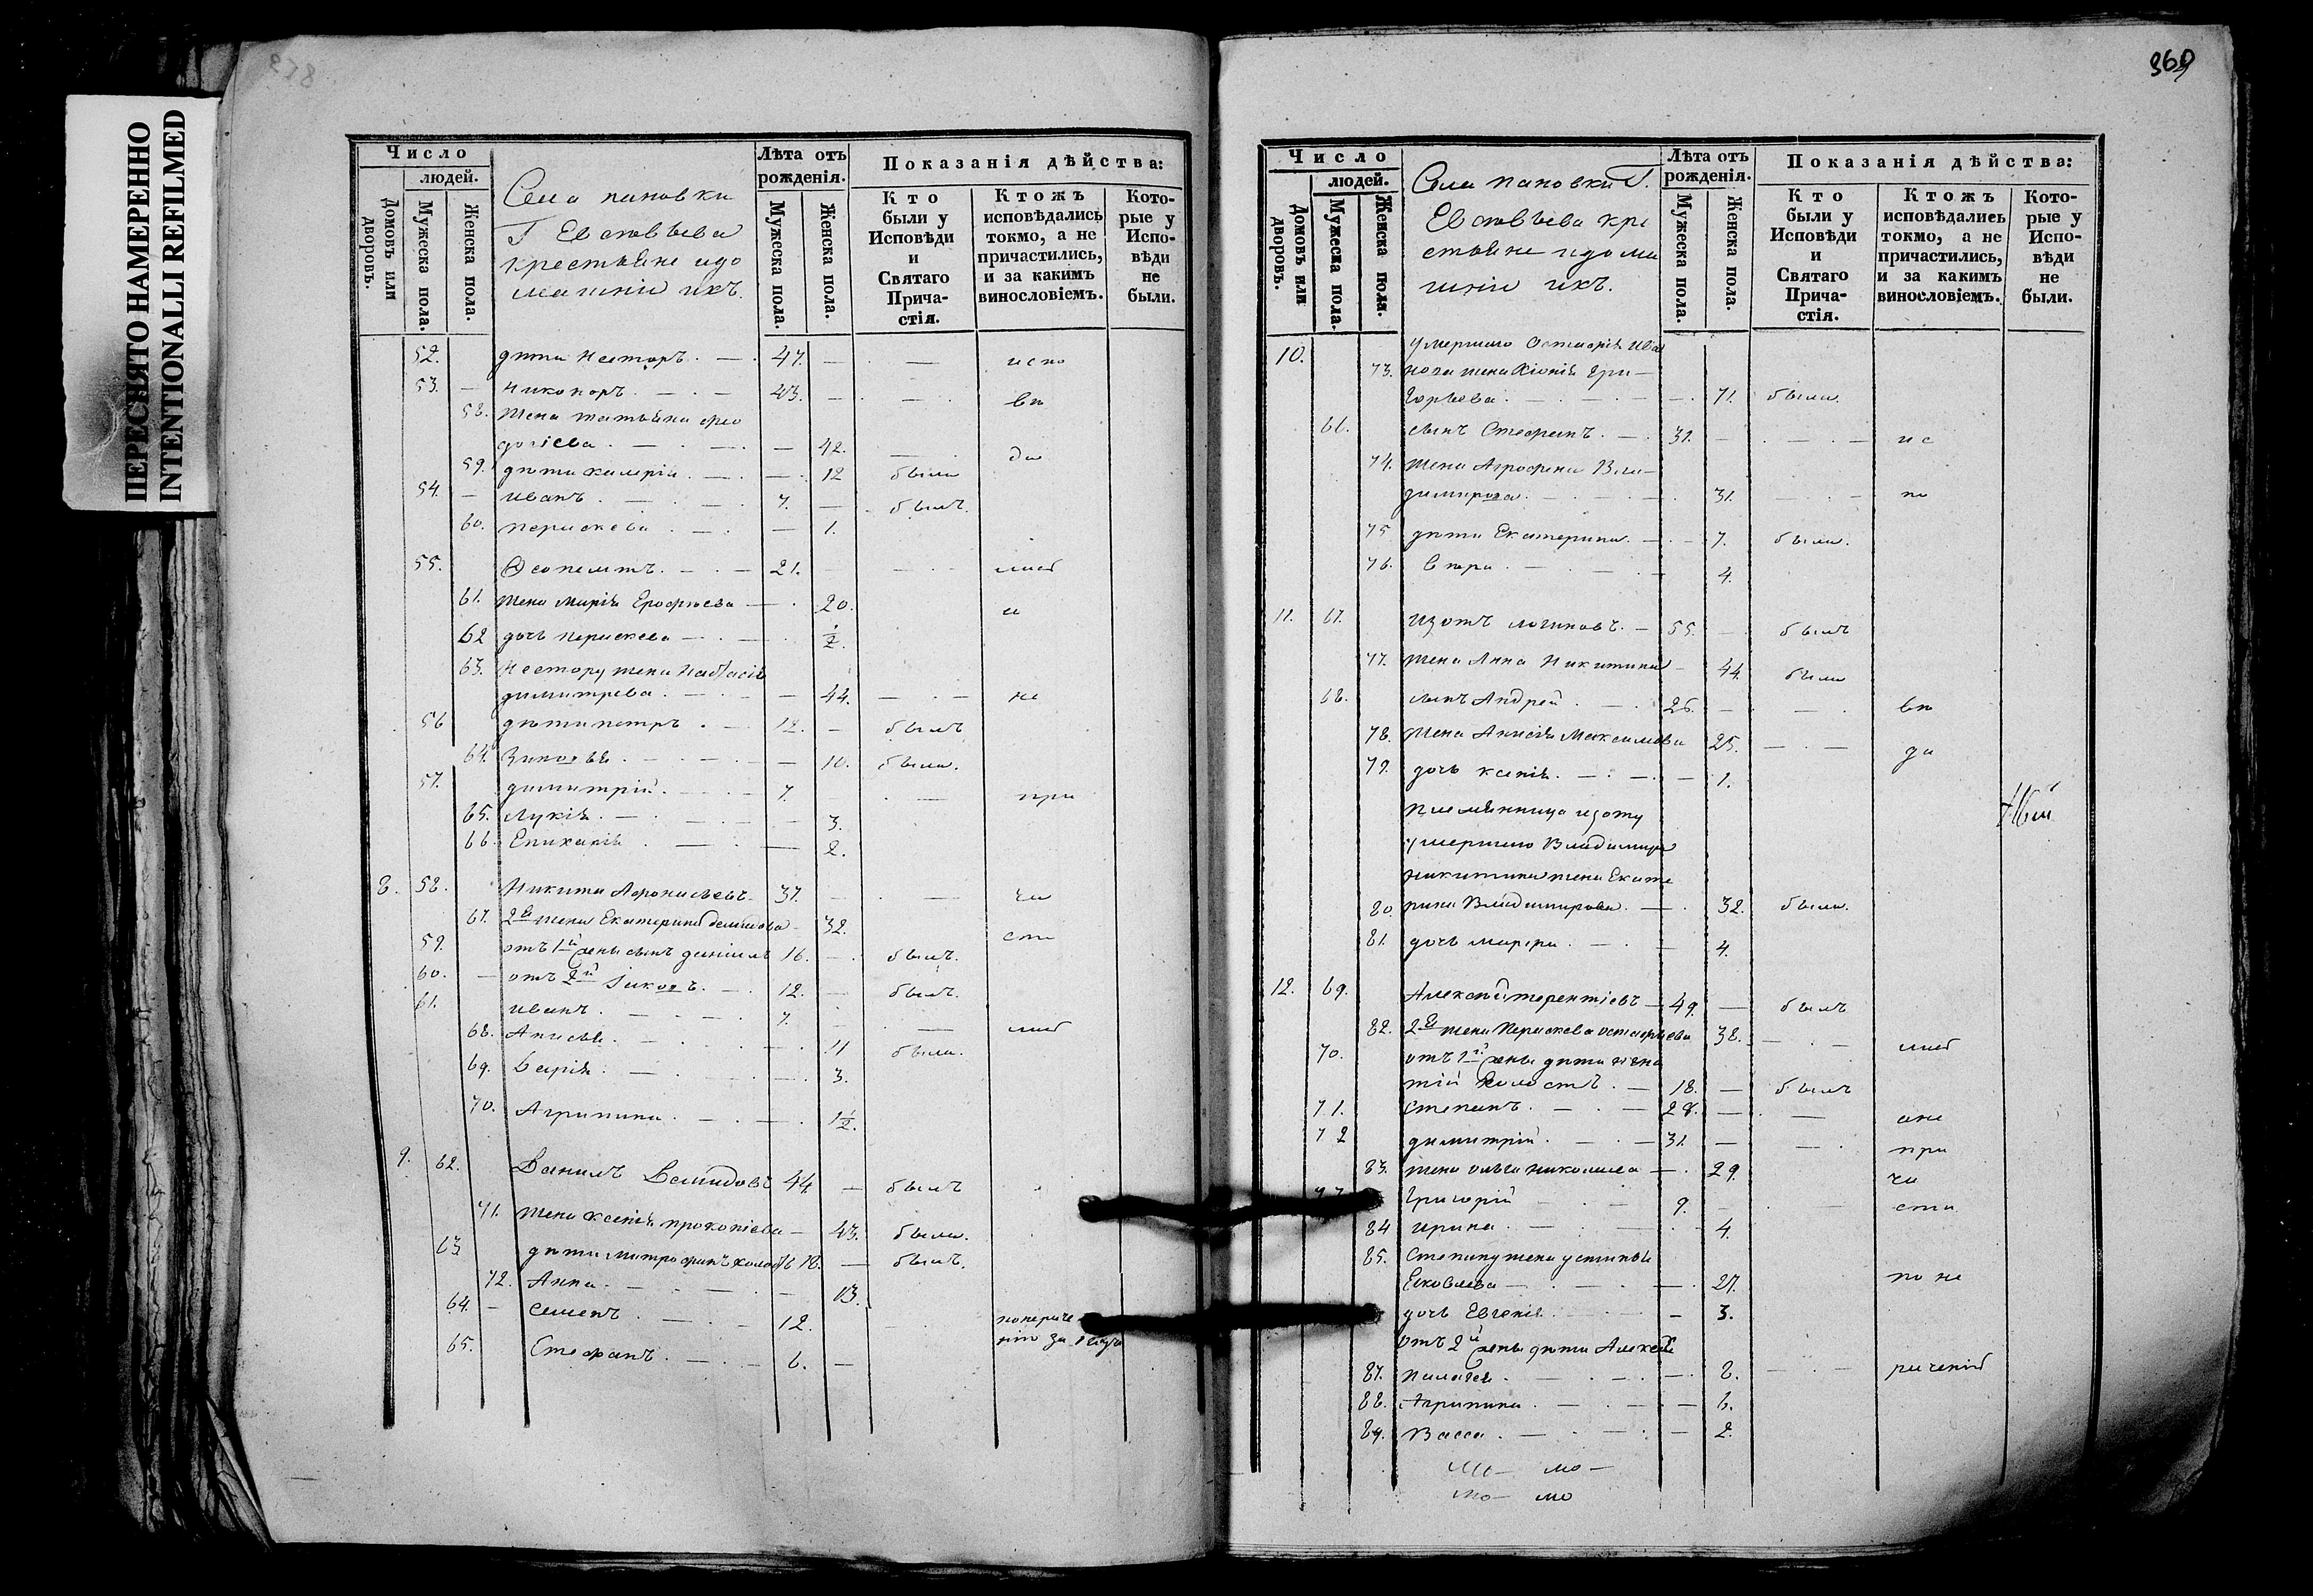 ПЕРЕСНЯТО НАМЕРЕННО
INTENTIONALLI REFILMED
Число
людей.
Домовъ или дворовъ.
Мужеска пола.
Женска пола.
Села пановки
Г Евсовьева
крестьяне и до
машнiи ихъ.
Лѣта отъ рожденiя.
Мужеска пола.
Женска пола.
Показанiя дѣйства:
Кто были у Исповѣди и Святаго Прича-стiя.
Ктожъ исповѣдались токмо, а не причастились, и за какимъ винословiемъ.
Кото-рые у Испо-вѣди не были.
52. дѣти Несторъ 47. испо
53. Никоноръ 43. вѣ
58. жена татьяна фео
досiева 42. да
59. дѣти калерiа 12 была
54. иванъ 7. былъ.
60. параскева 1.
55. Феопемптъ 21. лис
61. жена марiя Ерофѣева 20. а
62 дочь параскева ½.
63. Нестору жена Настасiя
димитрева 44. не
56 дѣти петръ 12. былъ
64. Зиновья 10. была.
57. димитрiй 7. при
65. Лукiя 3.
66. Епихарiя 2.
8. 58. Никита Афонасьевъ 37. ча
67. 2я жена Екатерина демидова 32. сти
59. отъ 1й жены сынъ данiилъ 16. былъ.
60. отъ 2й Iаковъ 12. былъ.
61. иванъ 7. лис
68. Анисья 11 была.
69. Дарiя 3.
70. Агрипина 1½.
9. 62. Данилъ Демидовъ 44 былъ
71. жена ксенiя прокопiева 43. была.
63 дѣти митрофанъ холостъ 18. былъ.
72. Анна 13.
64. семенъ 12. попериче
нiю за 1 годъ
65. Стефанъ 6.
369
Число
людей.
Домовъ или дворовъ.
Мужеска пола.
Женска пола.
Села пановки Г.
Евсовьева кре
стьяне и дома
шнiи ихъ.
Лѣта отъ рожденiя.
Мужеска пола.
Женска пола.
Показанiя дѣйства:
Кто были у Исповѣди и Святаго Прича-стiя.
Ктожъ исповѣдались токмо, а не причастились, и за какимъ винословiемъ.
Кото-рые у Испо-вѣди не были.
10. умершаго Астафiя Ива
73. нова жена Хiонiя Гри-
горьева 71. была.
66. сынъ Стефанъ 31. ис
74. жена Агрофена Вла-
димирова 31. по
75 дѣти Екатерина 7. была.
76. вѣра 4.
11. 67. изотъ логиновъ 55. былъ
77. жена Анна Никитина 44 была
68. сынъ Андрей 26. вѣ
78. жена Анисiя Максимова 25. да
79. дочь ксенiя 1.
племянница изоту
умершаго Владимира
никитина жена Екате
80. рина Владимирова 32. была.
81. дочь марфа 4.
12. 69. Алексѣй терентiевъ 49. былъ
82. 2я жена Параскева остафьева 38. лис
70. отъ 1й жены дѣти игна
тiй холостъ 18. былъ
71. Степанъ 28. ане
72 димитрiй 31. при
83. жена ольга николаева 29. ча
73. Григорiй 9. сти
84 ирина 4.
85. Степану жена устинья
Еаковлева 27. по не
дочь Евгенiя 3.
отъ 2й жены дѣти Алексѣю
87. пилагея 8. риченiю
88. Агрипина 6.
89. Васса 2.